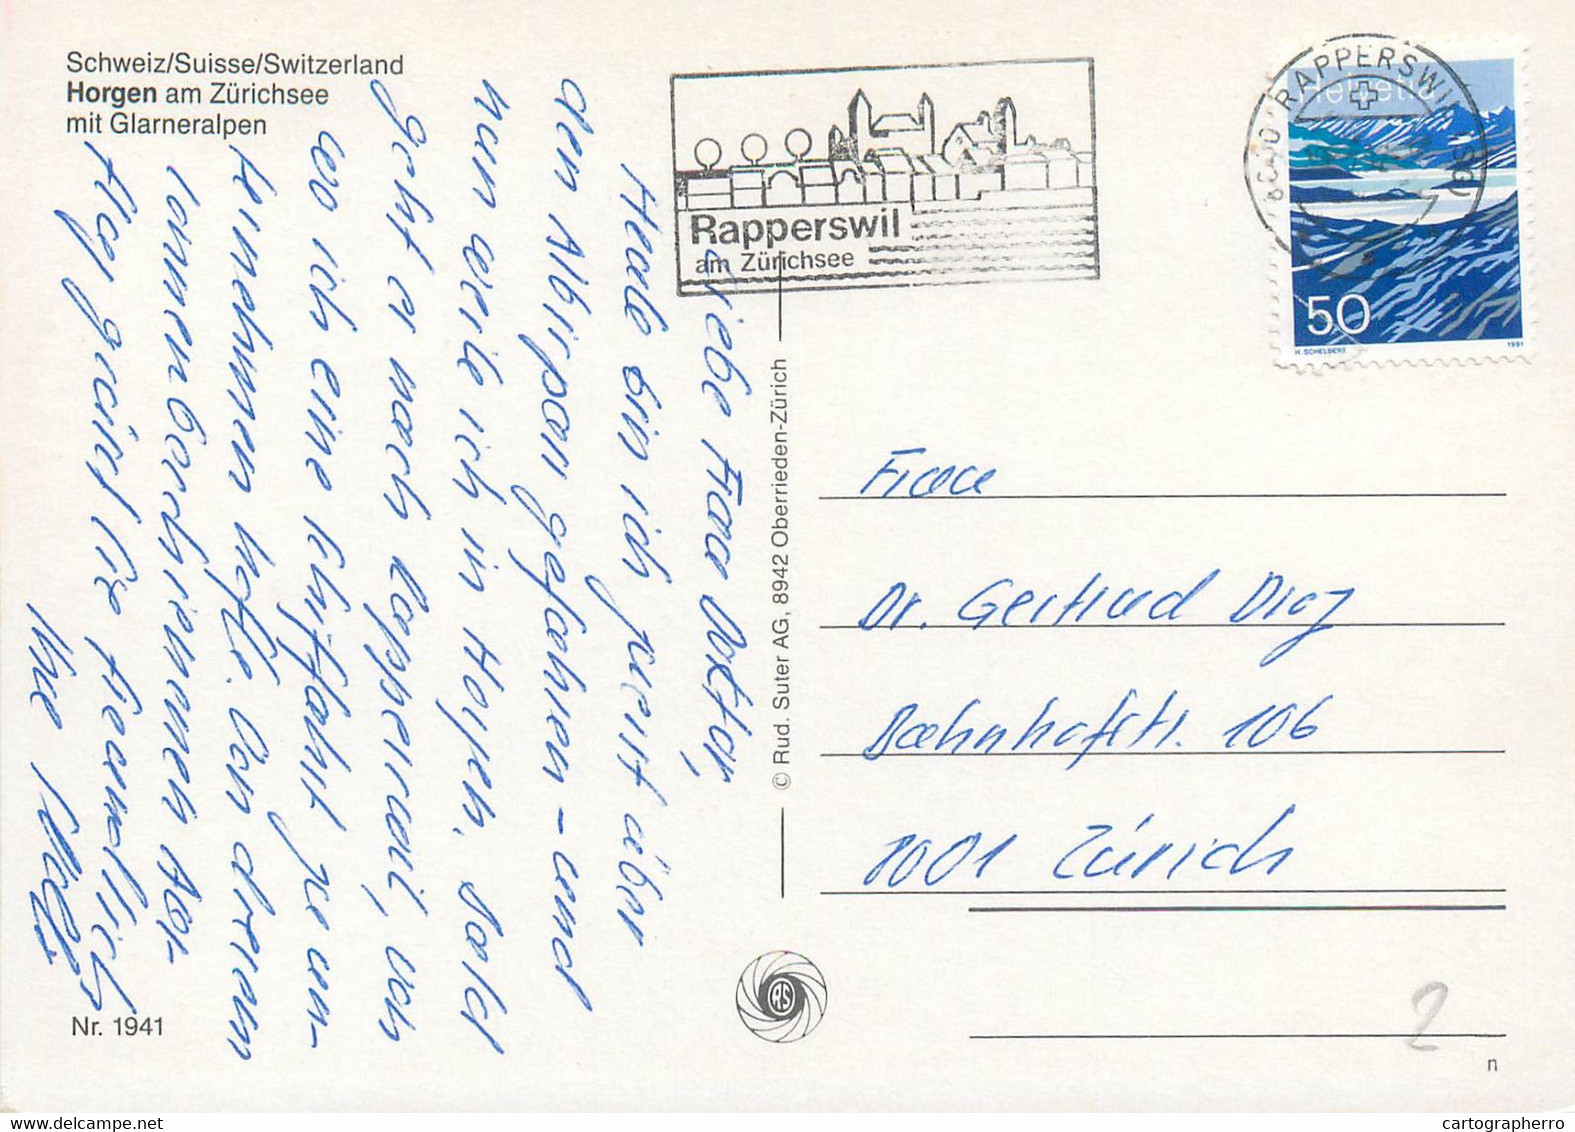 Schweiz/Suisse/Switzerland
Horgen am Zürichsee
mit Glarneralpen
Liebe Frau Doktor,
Heute bin ich zuerst über
den Albispass gefahren – und
nun weile ich in Horgen. Bald
geht es nach Rapperswil, von
wo ich eine Schiffahrt zu un-
ternehmen hoffe. Von diesem
sonnenberschienenen Aus-
flug grüsst Sie freundlich
Ihre
Nr. 1941
© Rud. Suter AG, 8942 Oberrieden-Zürich
RS
Rapperswil
am Zürichsee
8640 RAPPERSWIL (SG)
Helvetia
50
H. SCHELBERT 1991
Frau
Dr. Gertrud
Bahnhofstr. 106
8001 Zürich
2
n
cartographerro